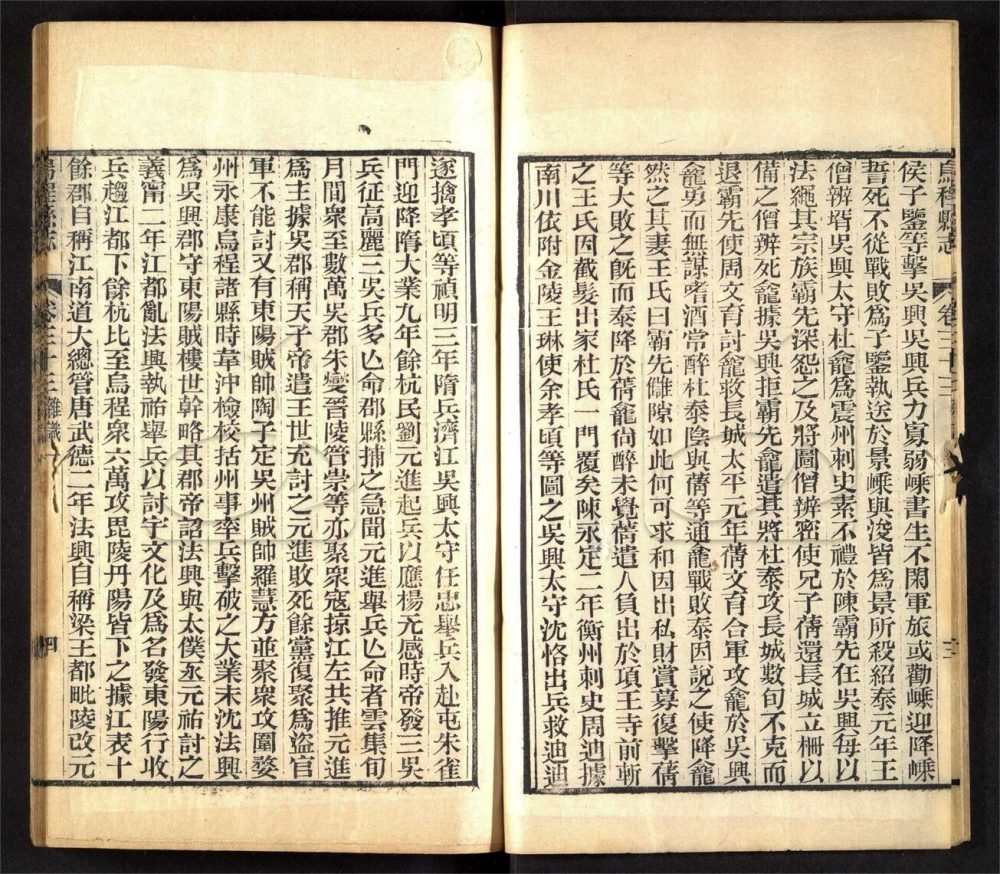 烏程縣志 卷三十三 三
侯子鑒等擊吳興吳興兵力寡弱嵊書生不閑軍旅或勸嵊迎降嵊
誓死不從戰敗爲子鑒執送於景嵊與浚皆爲景所殺紹泰元年王
僧辨壻吳興太守杜龕爲震州刺史素不禮於陳霸先在吳興每以
法繩其宗族霸先深怨之及將圖僧辨密使兄子蒨還長城立柵以
備之僧辨死龕據吳興拒霸先龕遣其將杜泰攻長城數旬不克而
退霸先使周文育討龕救長城太平元年蒨文育合軍攻龕於吳興
龕勇而無謀嗜酒常醉杜泰陰與蒨等通龕戰敗泰因說之使降龕
然之其妻王氏曰霸先讎隙如此何可求和因出私財賞募復擊蒨
等大敗之旣而泰降於蒨龕尙醉未覺蒨遣人負出於項王寺前斬
之王氏因截髮出家杜氏一門覆矣陳永定二年衡州刺史周迪據
南川依附金陵王琳使余孝頃等圖之吳興太守沈恪出兵救迪迪
遂擒孝頃等禎明三年隋兵濟江吳興太守任忠舉兵入赴屯朱雀
門迎降隋大業九年餘杭民劉元進起兵以應楊元感時帝發三吳
兵征高麗三吳兵多亾命郡縣捕之急聞元進舉兵亾命者雲集旬
月間衆至數萬吳郡朱燮晉陵管崇等亦聚衆寇掠江左共推元進
爲主據吳郡稱天子帝遣王世充討之元進敗死餘黨復聚爲盜官
軍不能討又有東陽賊帥陶子定吳州賊帥羅慧方並聚衆攻圍婺
州永康烏程諸縣時韋沖檢校括州事率兵擊破之大業末沈法興
爲吳興郡守東陽賊樓世幹略其郡帝詔法興與太僕丞元祐討之
義甯二年江都亂法興執祐舉兵以討宇文化及爲名發東陽行收
兵趨江都下餘杭比至烏程衆六萬攻毘陵丹陽皆下之據江表十
餘郡自稱江南道大總管唐武德二年法興自稱梁王都毗陵改元
烏程縣志 卷三十三 雜識 四